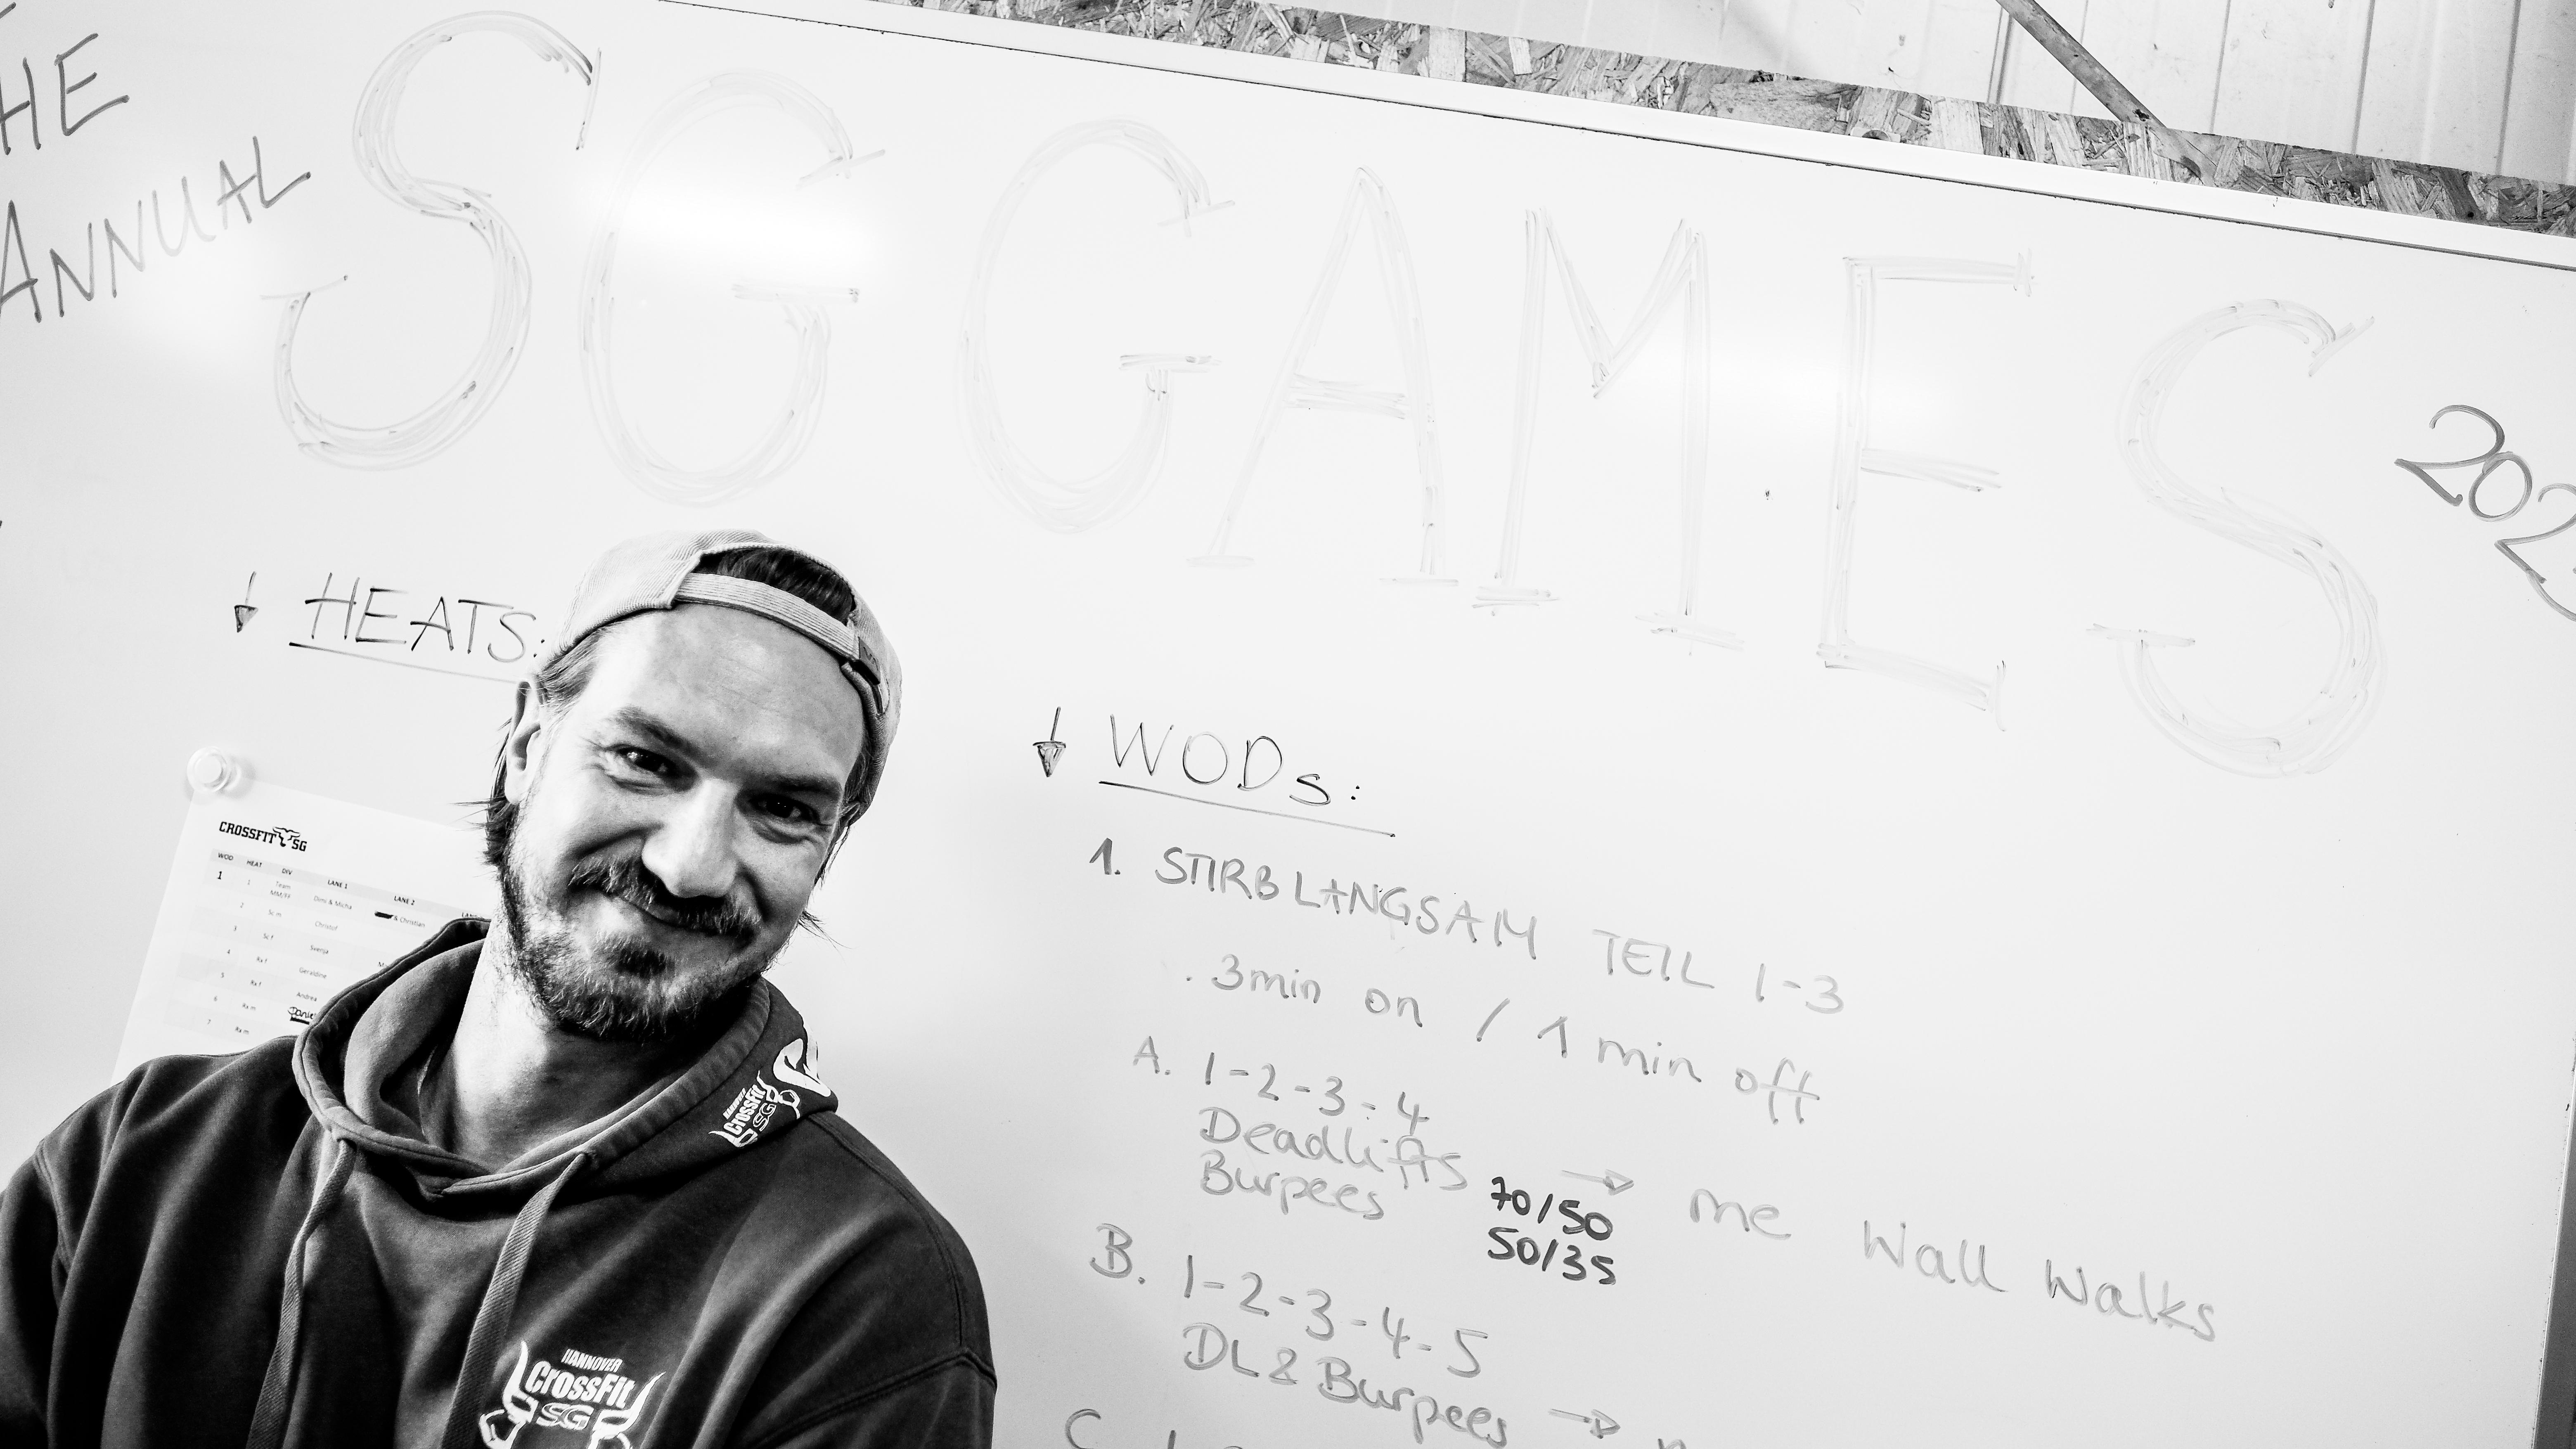 THE
ANNUAL
SG GAMES
HEATS:
CROSSFIT SG
WOD HEAT DIV LANE 1 LANE 2
1 1 Team MM/FF Dimi & Micha & Christian
2 Sc m Christof
3 Sc f Svenja
4 Rx f Geraldine
5 Rx f Andrea
6 Rx m
7 Rx m
WODs:
1. STIRB LANGSAM TEIL 1-3
. 3min on / 1 min off
A. 1-2-3-4
Deadlifts → me Wall Walks
Burpees 70/50
50/35
B. 1-2-3-4-5
DL & Burpees →
C.
HANNOVER
CrossFit
SG
HANNOVER
CrossFit
SG